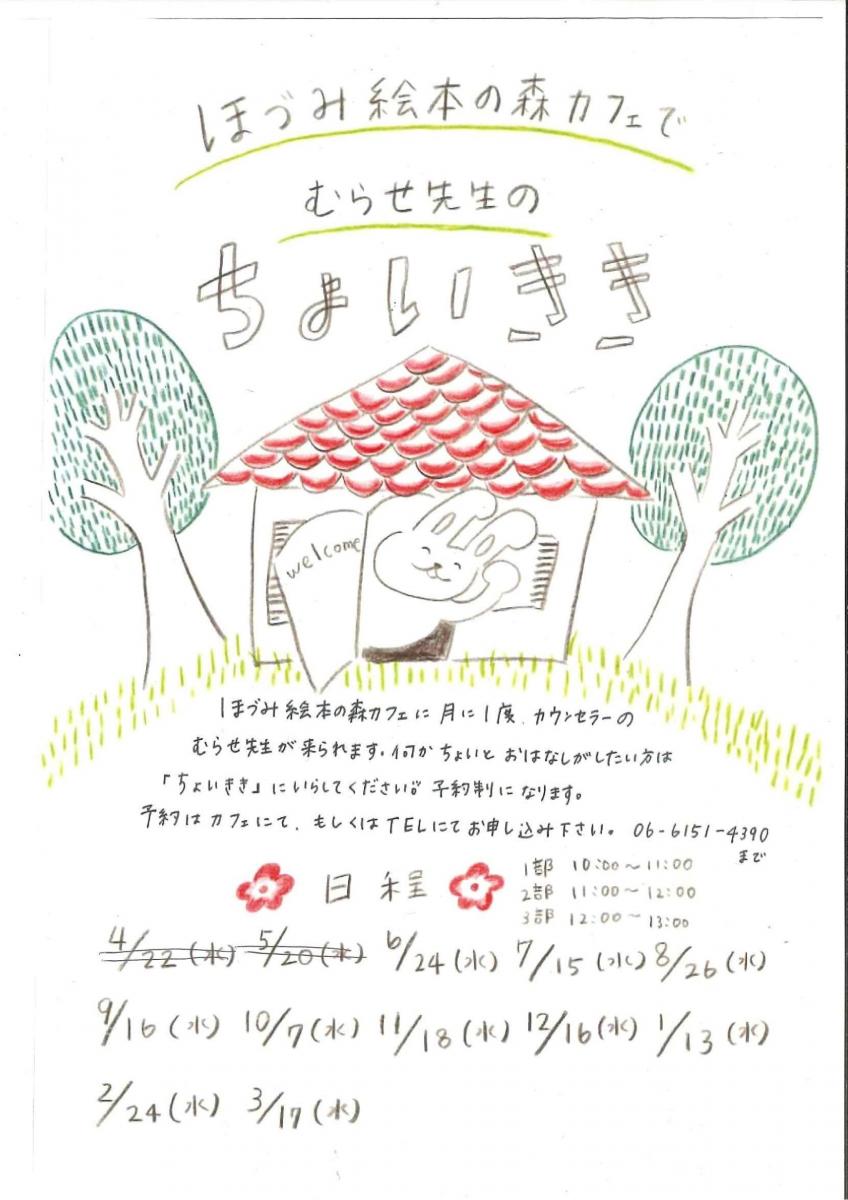 ほづみ絵本の森カフェで
むらせ先生の
ちょいきき
welcome
ほづみ絵本の森カフェに月に1度、カウンセラーの
むらせ先生が来られます。何かちょいとおはなしがしたい方は
「ちょいきき」にいらしてください。予約制になります。
予約はカフェにて、もしくはTELにてお申し込み下さい。06-6151-4390
まで
日程
1部 10:00～11:00
2部 11:00～12:00
3部 12:00～13:00
4/22(水) 5/20(水) 6/24(水) 7/15(水) 8/26(水)
9/16(水) 10/7(水) 11/18(水) 12/16(水) 1/13(水)
2/24(水) 3/17(水)